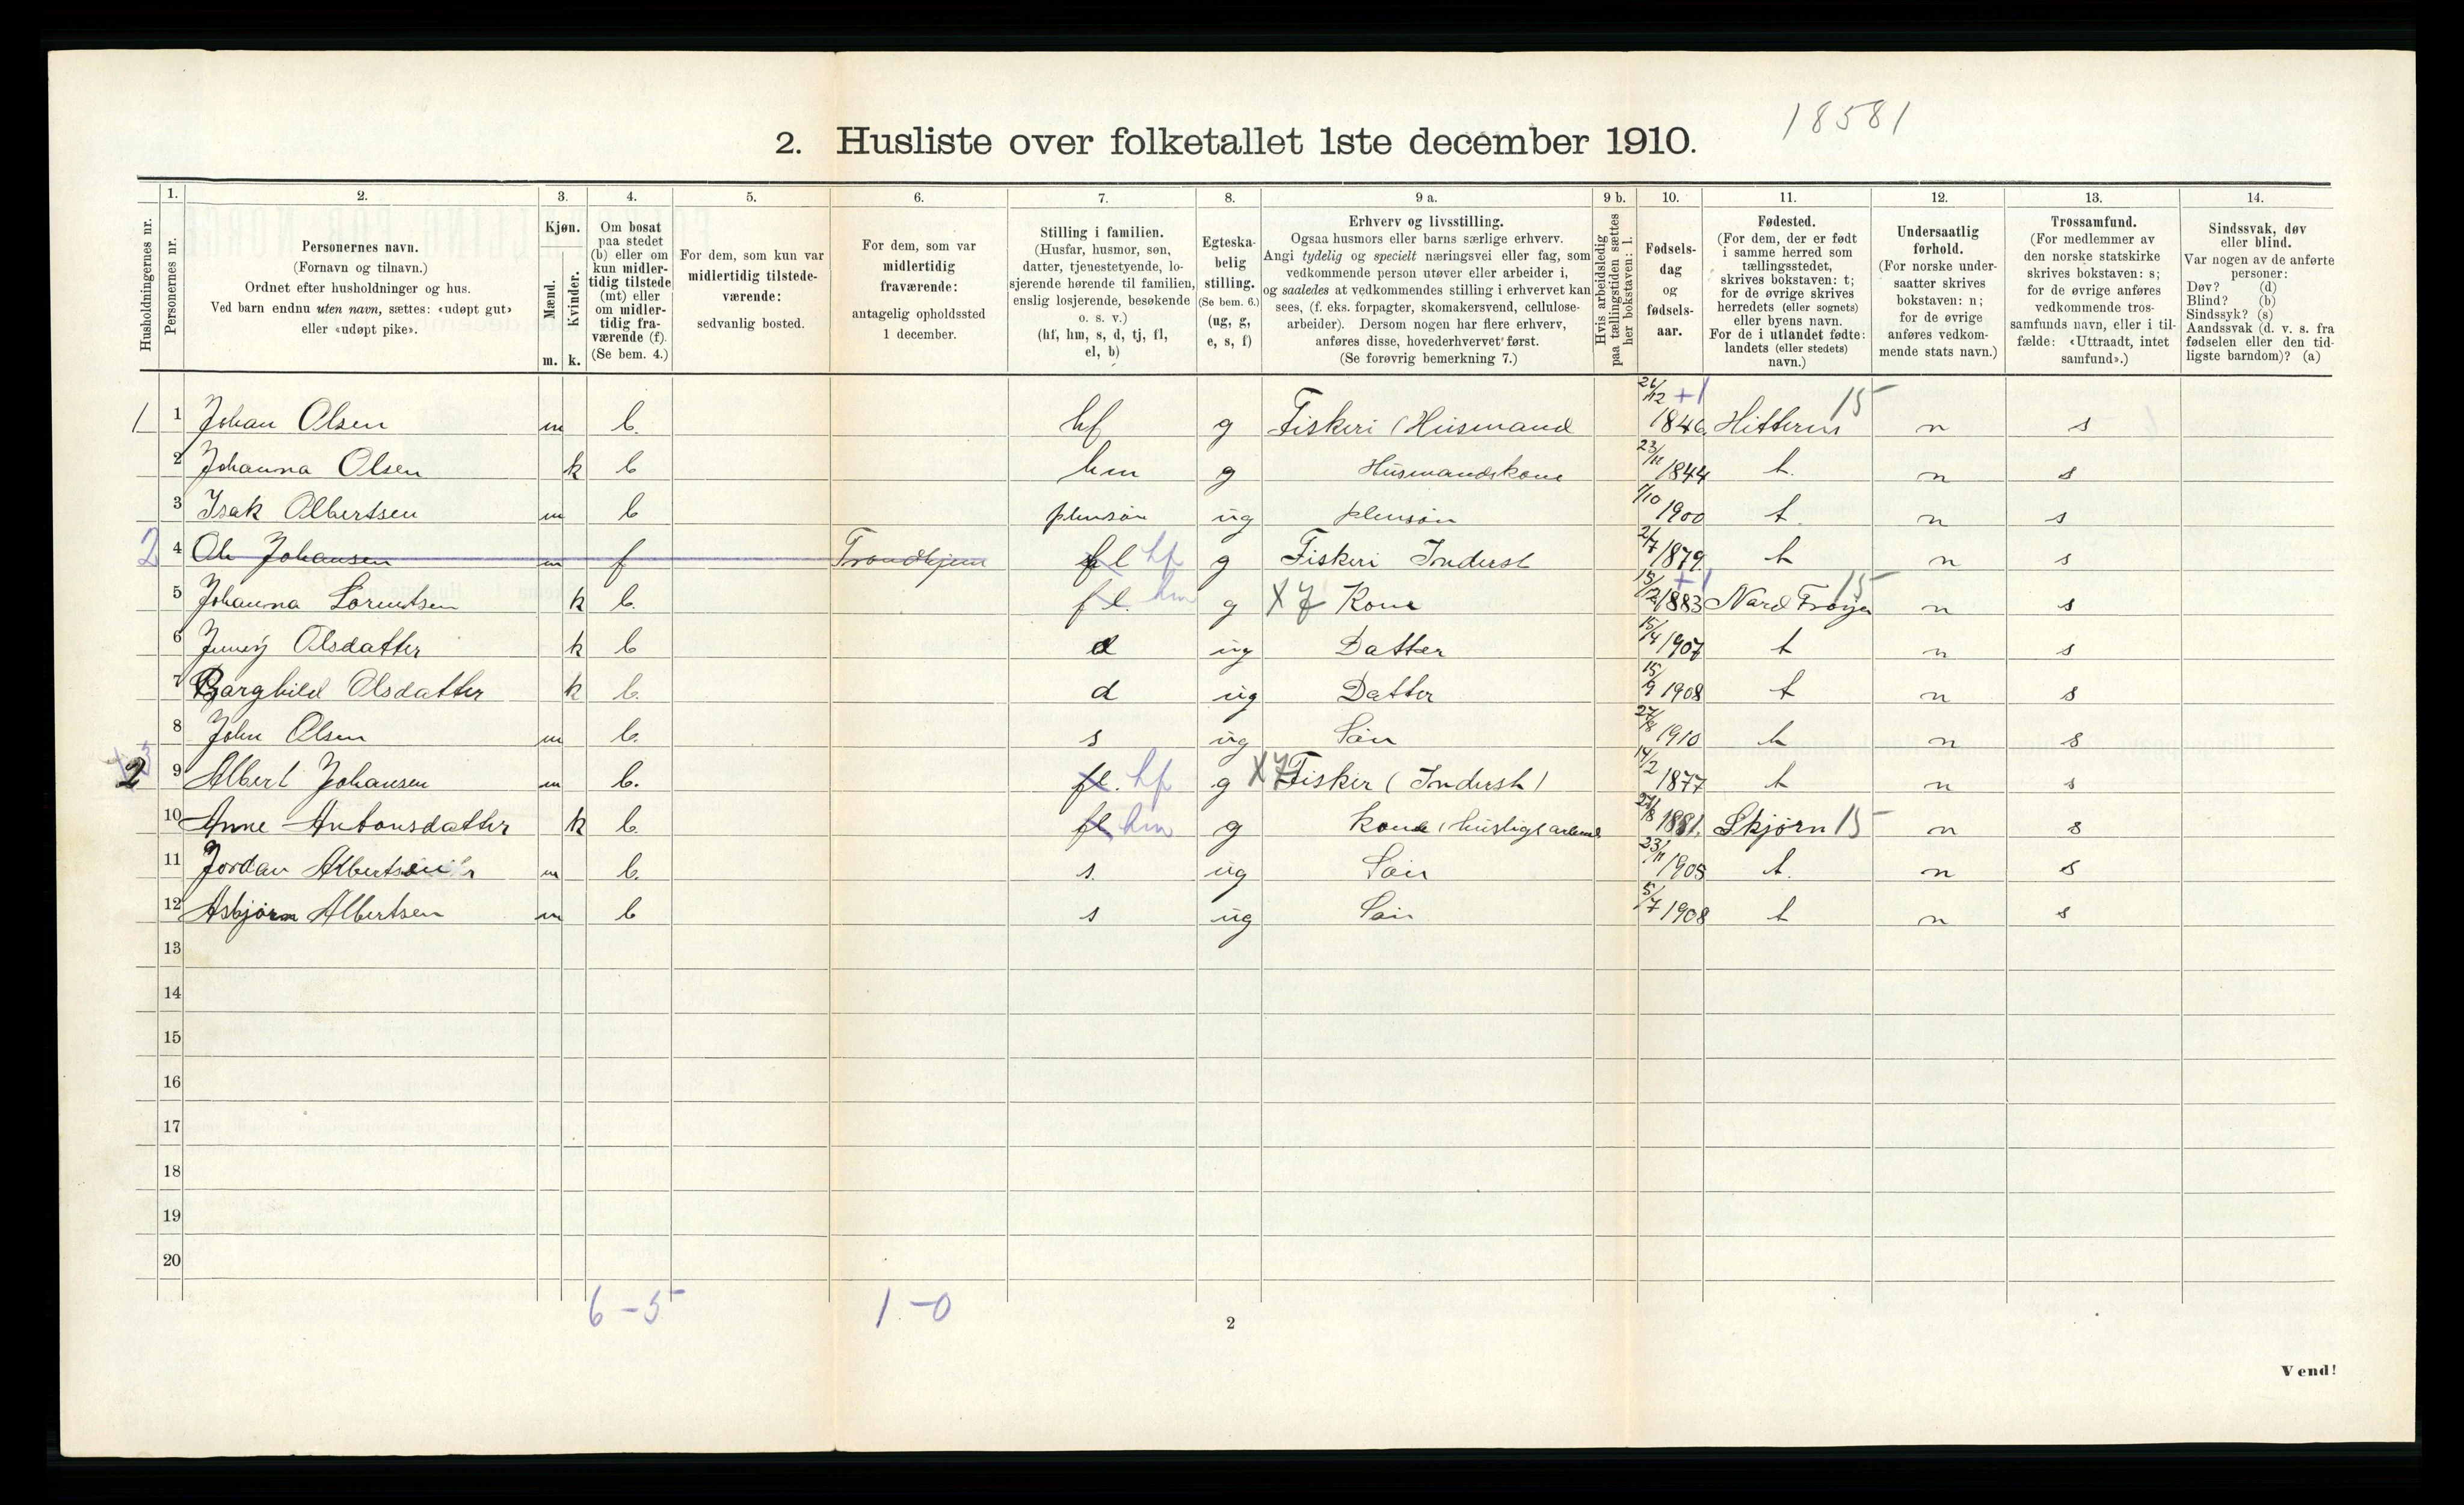 18581
2. Husliste over folketallet 1ste december 1910.
Husholdningernes nr.
1.
Personernes nr.
2.
Personernes navn.
(Fornavn og tilnavn.)
Ordnet efter husholdninger og hus.
Ved barn endnu uten navn, sættes: «udøpt gut»
eller «udøpt pike».
3.
Kjøn.
Mænd.
Kvinder.
m. k.
4.
Om bosat
paa stedet
(b) eller om
kun midler-
tidig tilstede
(mt) eller
om midler-
tidig fra-
værende (f).
(Se bem. 4.)
5.
For dem, som kun var
midlertidig tilstede-
værende:
sedvanlig bosted.
6.
For dem, som var
midlertidig
fraværende:
antagelig opholdssted
1 december.
7.
Stilling i familien.
(Husfar, husmor, søn,
datter, tjenestetyende, lo-
sjerende hørende til familien,
enslig losjerende, besøkende
o. s. v.)
(hf, hm, s, d, tj, fl,
el, b)
8.
Egteska-
belig
stilling.
(Se bem. 6.)
(ug, g,
e, s, f)
9 a.
Erhverv og livsstilling.
Ogsaa husmors eller barns særlige erhverv.
Angi tydelig og specielt næringsvei eller fag, som
vedkommende person utøver eller arbeider i,
og saaledes at vedkommendes stilling i erhvervet kan
sees, (f. eks. forpagter, skomakersvend, cellulose-
arbeider). Dersom nogen har flere erhverv,
anføres disse, hovederhvervet først.
(Se forøvrig bemerkning 7.)
9 b.
Hvis arbeidsledig
paa tællingstiden sættes
her bokstaven: l.
10.
Fødsels-
dag
og
fødsels-
aar.
11.
Fødested.
(For dem, der er født
i samme herred som
tællingsstedet,
skrives bokstaven: t;
for de øvrige skrives
herredets (eller sognets)
eller byens navn.
For de i utlandet fødte:
landets (eller stedets)
navn.)
12.
Undersaatlig
forhold.
(For norske under-
saatter skrives
bokstaven: n;
for de øvrige
anføres vedkom-
mende stats navn.)
13.
Trossamfund.
(For medlemmer av
den norske statskirke
skrives bokstaven: s;
for de øvrige anføres
vedkommende tros-
samfunds navn, eller i til-
fælde: «Uttraadt, intet
samfund».)
14.
Sindssvak, døv
eller blind.
Var nogen av de anførte
personer:
Døv? (d)
Blind? (b)
Sindssyk? (s)
Aandssvak (d. v. s. fra
fødselen eller den tid-
ligste barndom)? (a)
1 1 Johan Olsen m b. hf g Fiskeri (Husmand 26/12 +1 1846 Hitteren 15 n s
2 Johanna Olsen k b hm g Husmandskone 23/11 1844 t. n s
3 Isak Albertsen m b plensøn ug plensøn 1/10 1900 t. n s
2 4 Ole Johansen m f Trondhjem fl hf g Fiskeri Inderst 2/7 1879 t n s
5 Johanna Lorentsen k b. fl. hm g X 7 Kone 15/12 +1 1883 Nord Frøyen 15 n s
6 Jenny Olsdatter k b d ug Datter 15/4 1907 t n s
7 Borghild Olsdatter k b. d ug Datter 15/9 1908 t n s
8 John Olsen m b. s ug Søn 27/8 1910 t n s
2 9 Albert Johansen m b. fl. hf g X7 Fisker (Inderst) 14/2 1877 t n s
10 Anne Antonsdatter k b. fl hm g Kone (huslig arbeide 27/8 1881. Skjørn 15 n s
11 Jordan Albertsen m b. s. ug Søn 23/11 1905 t. n s
12 Asbjørn Albertsen m b s ug Søn 5/7 1908 t n s
13
14
15
16
17
18
19
20
6 - 5 1 - 0
2
Vend!